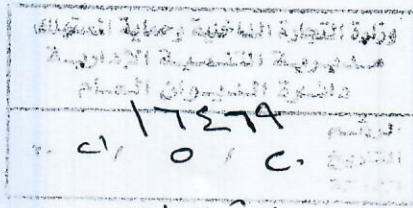 وزارة التجارة الداخلية وحماية المستهلك
مديرية التنمية الإدارية
دائرة الديوان العام
١٦٤٦٩
الرقم
التاريخ ٢٠ / ٥ / ٢٠٢١